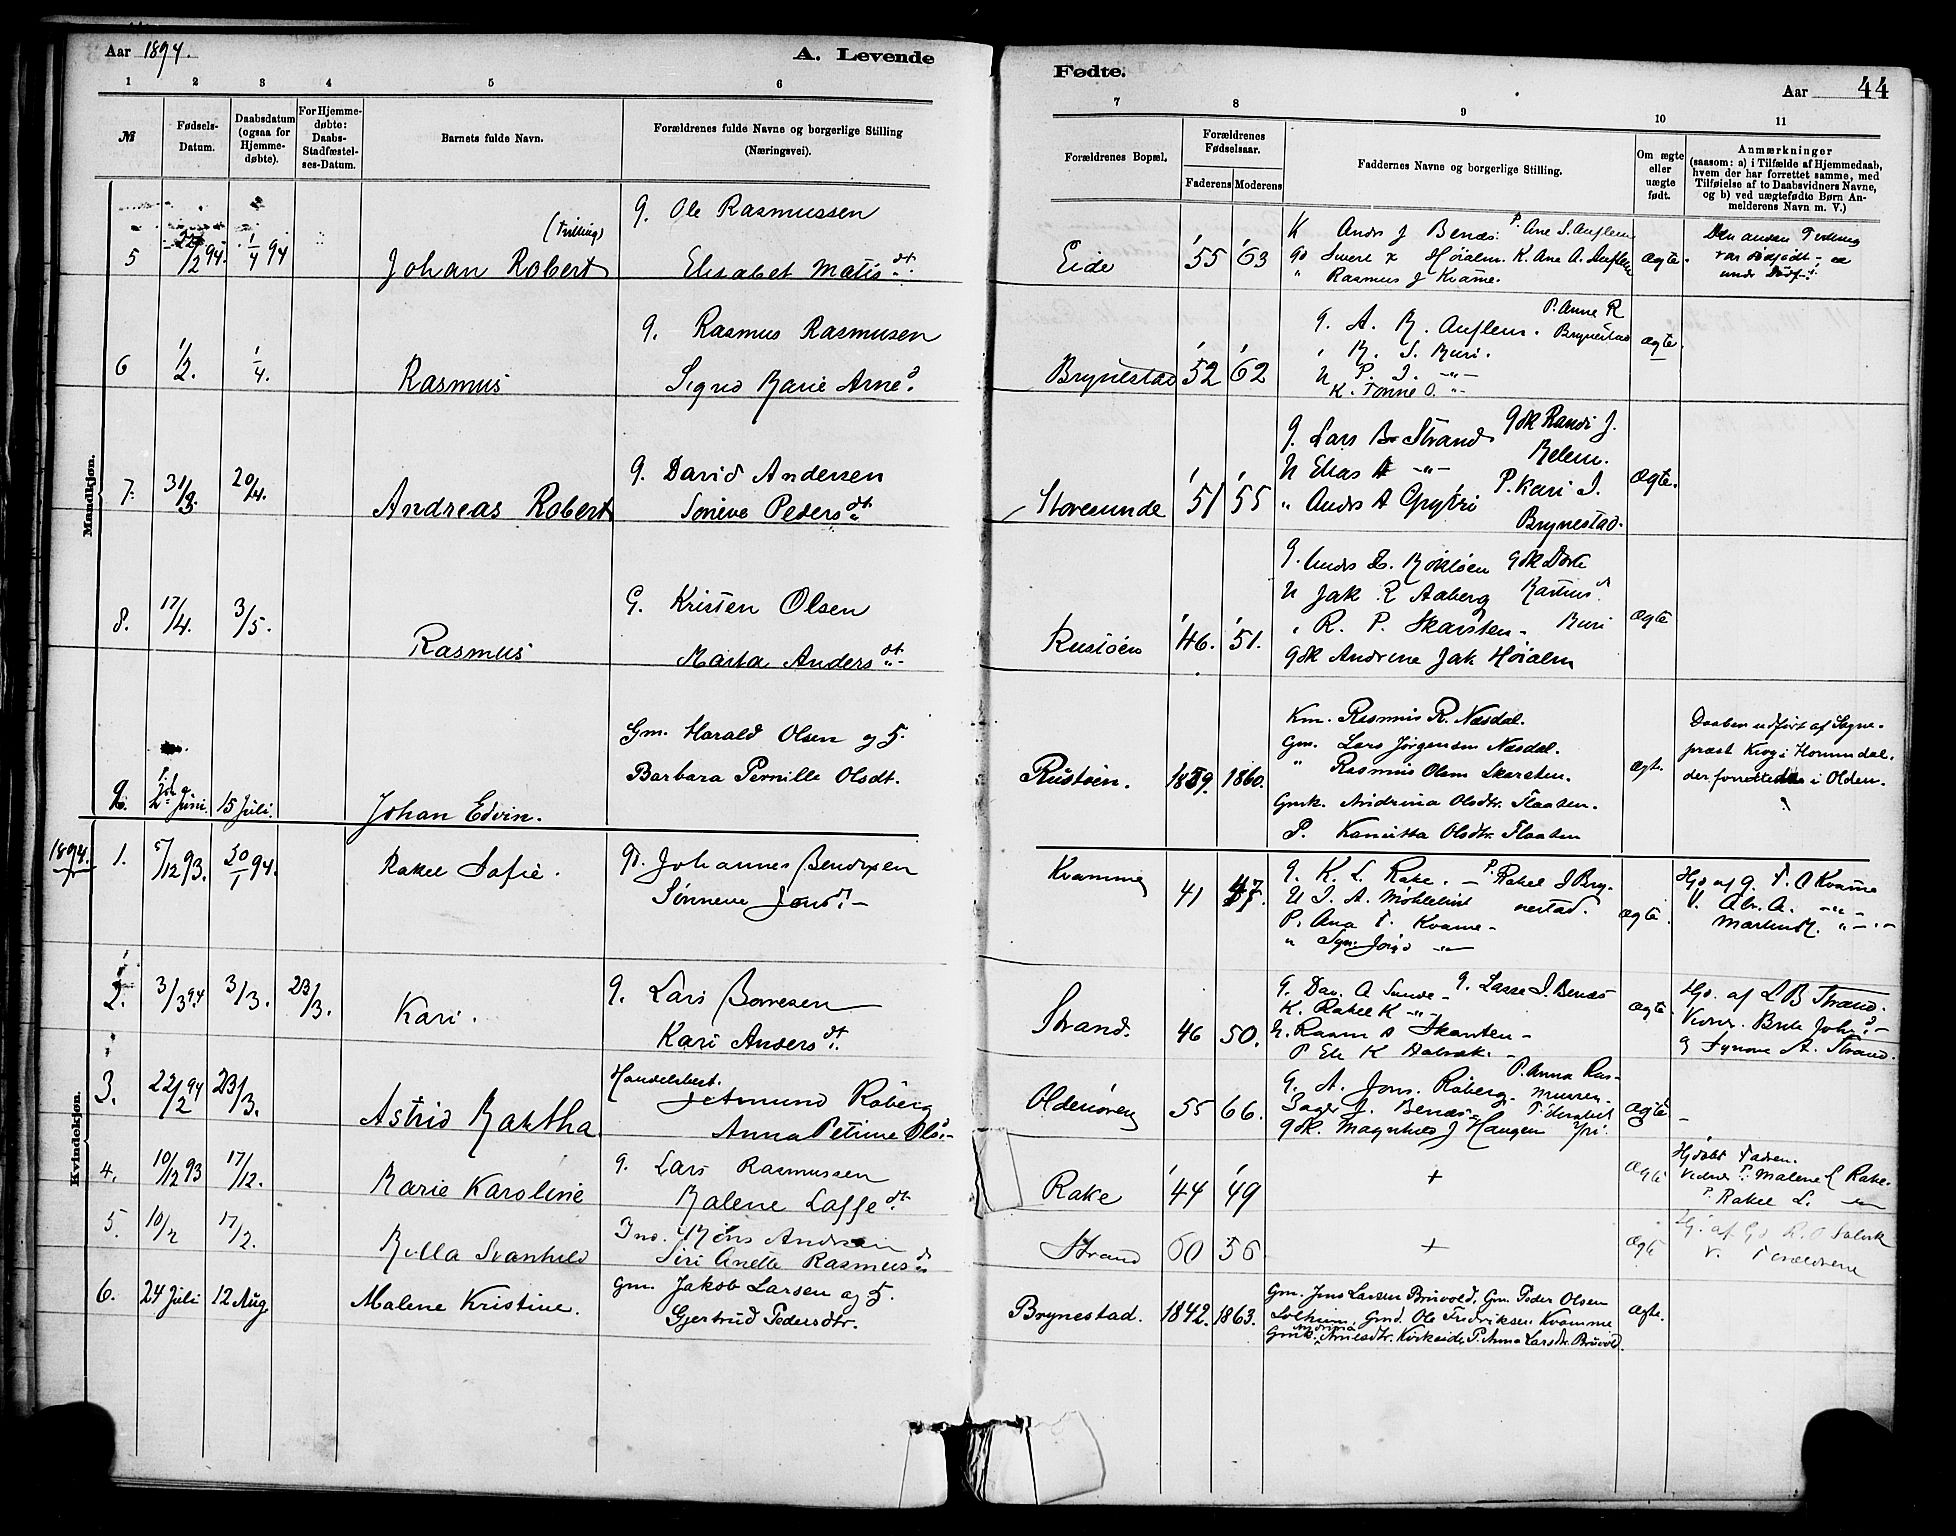 Aar 1894.
A. Levende
Fødte.
Aar
44
1 2 3 4 5 6 7 8 9 10 11
№
Fødsels-Datum.
Daabsdatum (ogsaa for Hjemmedøbte).
For Hjemmedøbte: Daabs-Stadfæstelses-Datum.
Barnets fulde Navn.
Forældrenes fulde Navne og borgerlige Stilling (Næringsvei).
Forældrenes Bopæl.
Forældrenes Fødselsaar.
Faderens Moderens
Faddernes Navne og borgerlige Stilling.
Om ægte eller uægte født.
Anmærkninger
(saasom: a) i Tilfælde af Hjemmedaab, hvem der har forrettet samme, med Tilføielse af to Daabsvidners Navne, og b) ved uægtefødte Børn Anmelderens Navn m. V.)
Mandkjøn.
5 /2 94. 1/4 94 Johan Robert (Tvilling)
G. Ole Rasmussen
Elisabet Matis dt.
Eide '55 '63
K Anders J Benæs. P. Ane S. Auflem
Høialm. K. Ane A. Auflem
" Rasmus J Kvame.
Ægte.
Den anden Tvilling
var dødfødt
6 1/2. 1/4. Rasmus
G. Rasmus Rasmusen
Sigrid Marie Arne d.
Brynestad '52 '62
G. A. R. Auflem. P. Anne R Brynestad
" R. S. Muri.
U P. J. -"-
K. Tonne O. "-
Ægte.
7. 31/3. 20/4. Andreas Robert
G. David Andersen
Søneve Peders dt
Storesunde '51 '55
G. Lars B Strand Gdk Randi J. Melem.
U Elias A -"-
" Anders A Gryteri P. Kari I. Brynestad.
Ægte.
8. 17/4. 3/5. Rasmus
G. Kristen Olsen
Marta Anders dt.
Rustøen '46. '51.
U Jak. R Aaberg Rasmus d.
" R. P. Skarsten - Muri
Gdk Andrine Jak Høialm
Ægte
9. Juni. 15 Juli. Johan Edvin.
Gm. Harald Olsen og H.
Barbara Pernille Olsdt.
Rustøen. 1859. 1860.
Km. Rasmus R. Næsdal.
Gm. Lars Jørgensen Næsdal.
" Rasmus Olsen Skarsten.
Gmk. Andrina Olsdtr. Flaaten.
P. Olsdtr. Flaaten
Ægt.
Daaben udført af Sognepræst Krog i Hornindal.
der forrettede i Olden.
Kvindekjøn.
1894.
1. 5/12 93. 30/1 94. Rakel Sofie.
Gd. Johannes Bendixen
Sønneve Jons d.-
Kvamme 41 47.
G. K. L. Rake. - P. Rakel J Brynestad.
U J. A. Møklebust
P. Ana T. Kvame -
Ægte.
Hjd af G. T. O Kvame
V. Abr. A. -"-
2. 3/3 94 3/3. 23/3. Kari.
G. Lars Børresen
Kari Anders dt.
Strand. 46 50.
G. Dav. A Sunde - G. Lasse J. Benæs
K. Rakel K -"-
U. Rasm A Skarsten -
Ægte
Hjd. af L B Strand.
A. Strand.
3. 22/2 94 23/3. Astrid Martha
Handelsbest.
Aamund Råberg
Anna Petrine Ols d.-
Oldenøren 55 66.
G. A. Jons. Råberg. P. Anna Rasmussen
J. Benæs
Gdk. J Haugen
Ægte -
4. 10/12 93 17/12. Marie Karoline
G. Lars Rasmussen
Malene Lasse dt.
Rake '44 '49
+
Ægte
Hjdøbt Faderen.
Vidner P. Malene L Rake.
P. Rakel L. -"-
5. 10/2 17/2. Milla Svanhild
Ind. Mons Andersen
Siri Anette Rasmus d.
Strand 60 56
+
Ægte
V. Forældrene
6. 24 Juli 12 Aug Malene Kristine.
Gm. Jakob Larsen og H.
Gjertrud Pedersdtr.
Brynestad. 1842. 1863.
Gm. Jens Larsen Bruvold, Gm. Peder Olsen
Solheim, Gmd. Ole Fredriksen Kvamme
Gmk. Andrina Arnesdtr. Kirkeide, P. Anna Larsdtr. Bruvold.
Ægte.